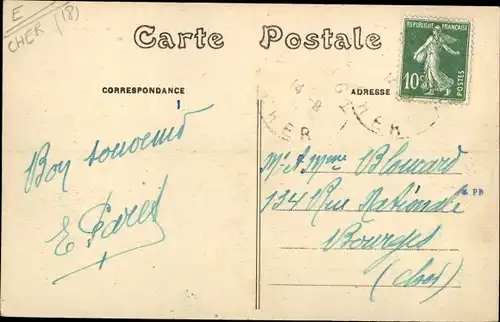 E
CHER (18)
Carte Postale
CORRESPONDANCE
ADRESSE
REPUBLIQUE FRANÇAISE
10c
POSTES
CHER
CHER
Bon souvenir
Mr et Mme Blouard
134 Rue Nationale
Bourges
(Cher)